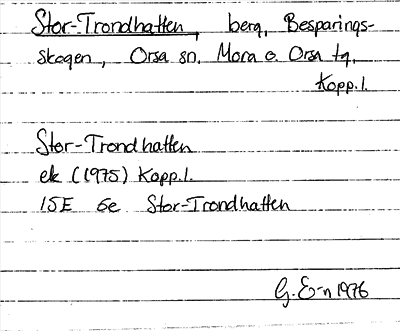 Stor-Trondhatten, berg, Besparings-
skogen, Orsa sn. Mora o. Orsa tg.
Kopp.l.
Stor-Trondhatten
ek (1975) Kopp.l.
15E 6e Stor-Trondhatten
G. E-n 1976